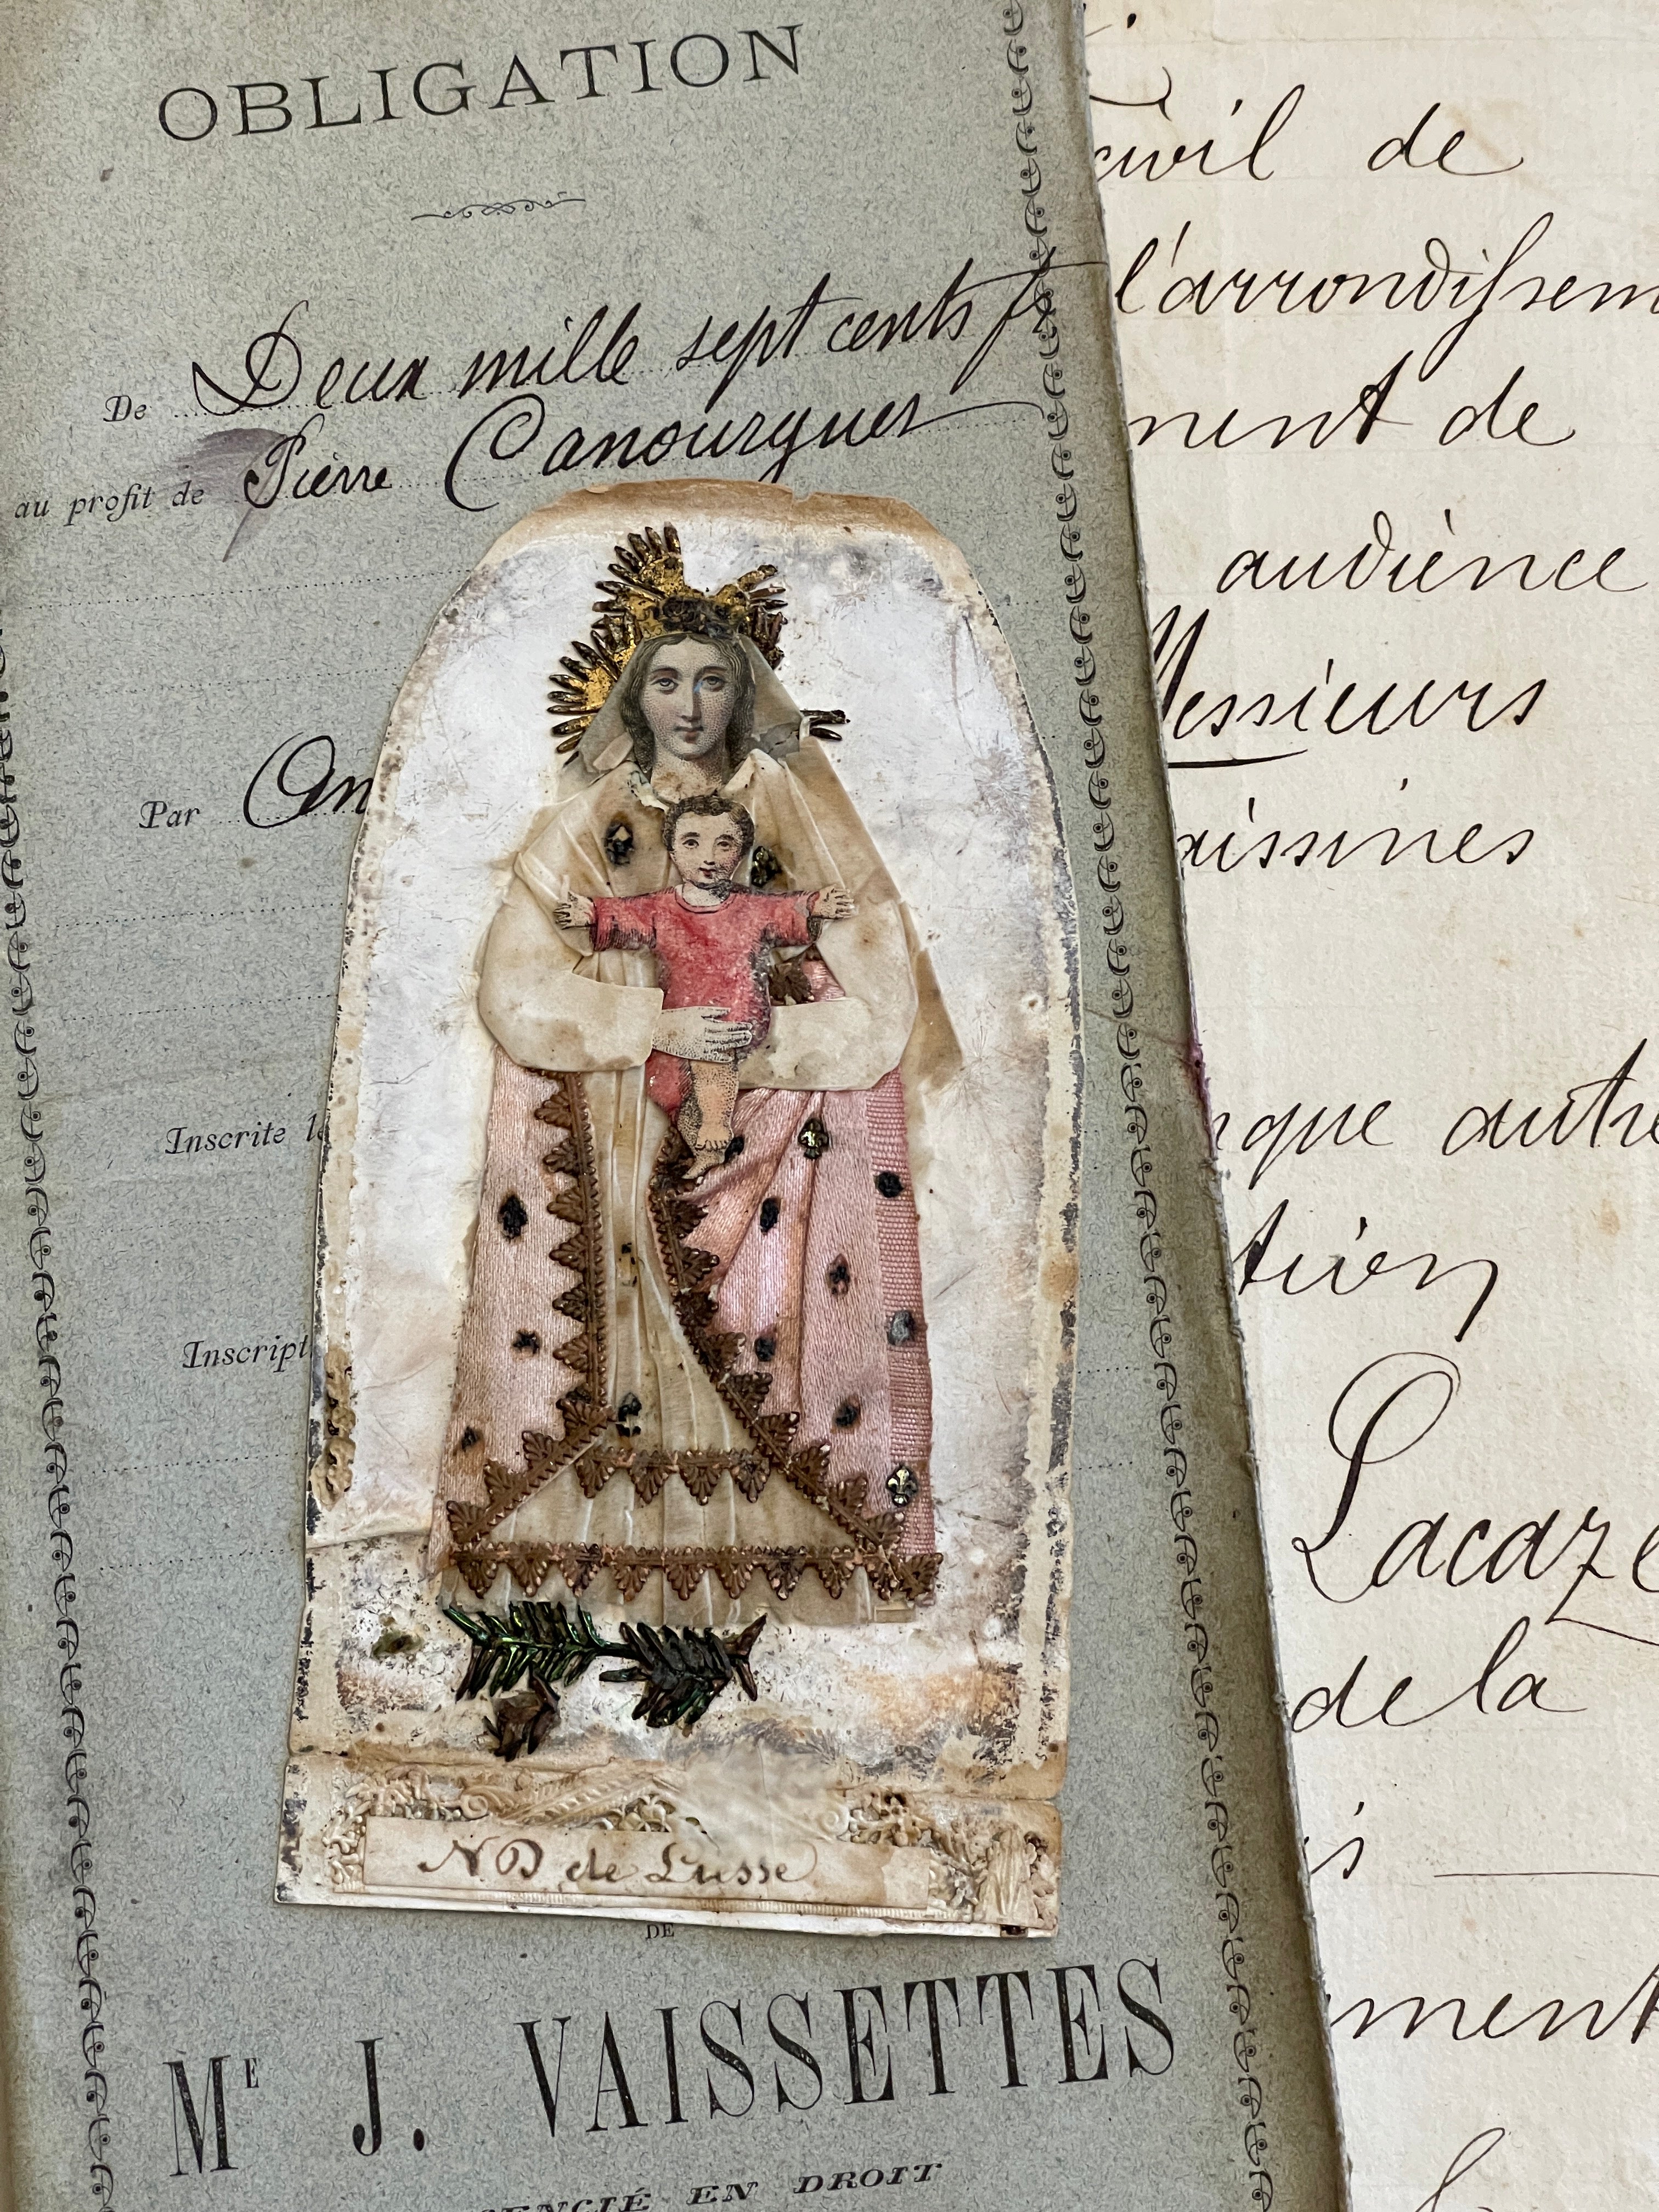 OBLIGATION
De Deux mille sept cents f
au profit de Pierre Canourgues
Par
Inscrite le
Inscript
N D de Lusse
DE
ME J. VAISSETTES
ENCIÉ EN DROIT
civil de
l'arrondissem
nent de
audience
Messieurs
aissines
que autre
tion
Lacaze
de la
is
ment